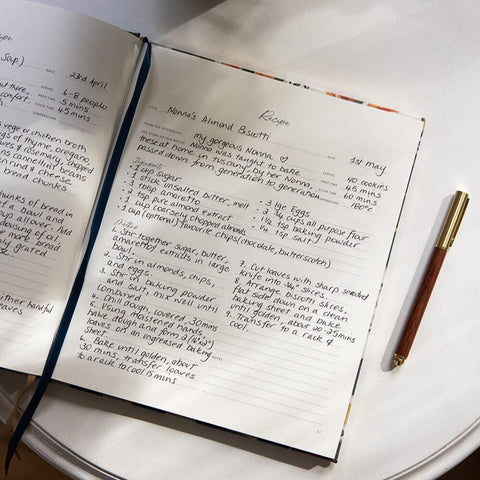 Recipe
Soup)
DATE 23rd April
SERVES 6-8 people
PREP TIME 5 mins
COOK TIME 45 mins
out there,
comfort.
or chicken broth
of thyme, oregano,
and rosemary, chopped
cannellini beans
rind & cheese
bread chunks
chunks of bread in
a bowl and
bread
grated
either handful
leaves
Recipe
TITLE Nonna's Almond Biscotti
DATE 1st May
FROM THE KITCHEN OF: my gorgeous Nonna ♡
SERVES 40 cookies
THE STORY OF THIS RECIPE: Nonna was taught to bake
PREP TIME 45 mins
these at home in tuscany, by her Nonna,
COOK TIME 60 mins
passed down from generation to generation
Ingredients
• 1 cup sugar
• 1 stick unsalted butter, melt
• 3 tblsp amaretto
• 2 tsp pure almond extract
• 1 cup coarsely chopped almonds
• 1 cup (optional) favourite chips (chocolate, butterscotch)
• 3 lge Eggs
• 2 3/4 cups all purpose flour
• 1 1/2 tsp baking powder
• 1/4 tsp salt
Method
1. Stir together sugar, butter,
amaretto & extracts in large
bowl.
2. Stir in almonds, chips,
and eggs.
3. Stir in baking powder
and salt, mix well until
combined.
4. Chill dough, covered, 30 mins
5. Using moistened hands,
halve dough and form 2 (16"x2")
loaves on an
baking
sheet
6. Bake until golden, about
30 mins, transfer loaves
to a rack to cool 15 mins
7. Cut loaves with sharp serrated
knife into 3/4" slices.
8. Arrange biscotti slices,
flat side down on a clean
baking sheet and bake
until golden, about 20-25mins
9. Transfer to a rack &
cool.
NOTES